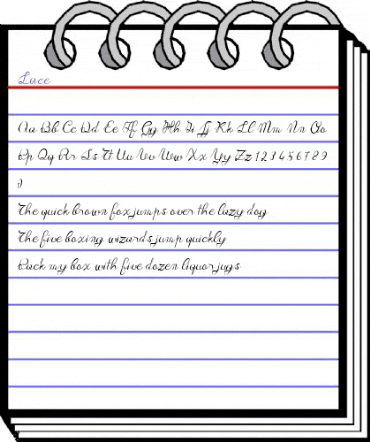 Lace
Aa Bb Cc Dd Ee Ff Gg Hh Ii Jj Kk Ll Mm Nn Oo
Pp Qq Rr Ss Tt Uu Vv Ww Xx Yy Zz 1 2 3 4 5 6 7 8 9
0
The quick brown fox jumps over the lazy dog
The five boxing wizards jump quickly
Pack my box with five dozen liquor jugs